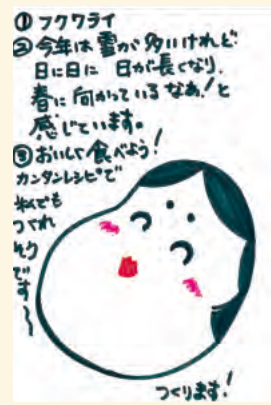 ① フクワライ
② 今年は雪が多いけれど
日に日に 日が長くなり、
春に向かっているなあ!と
感じています。
③ おいしく食べよう!
カンタンレシピで
私でも
つくれ
そう
です〜
つくります!